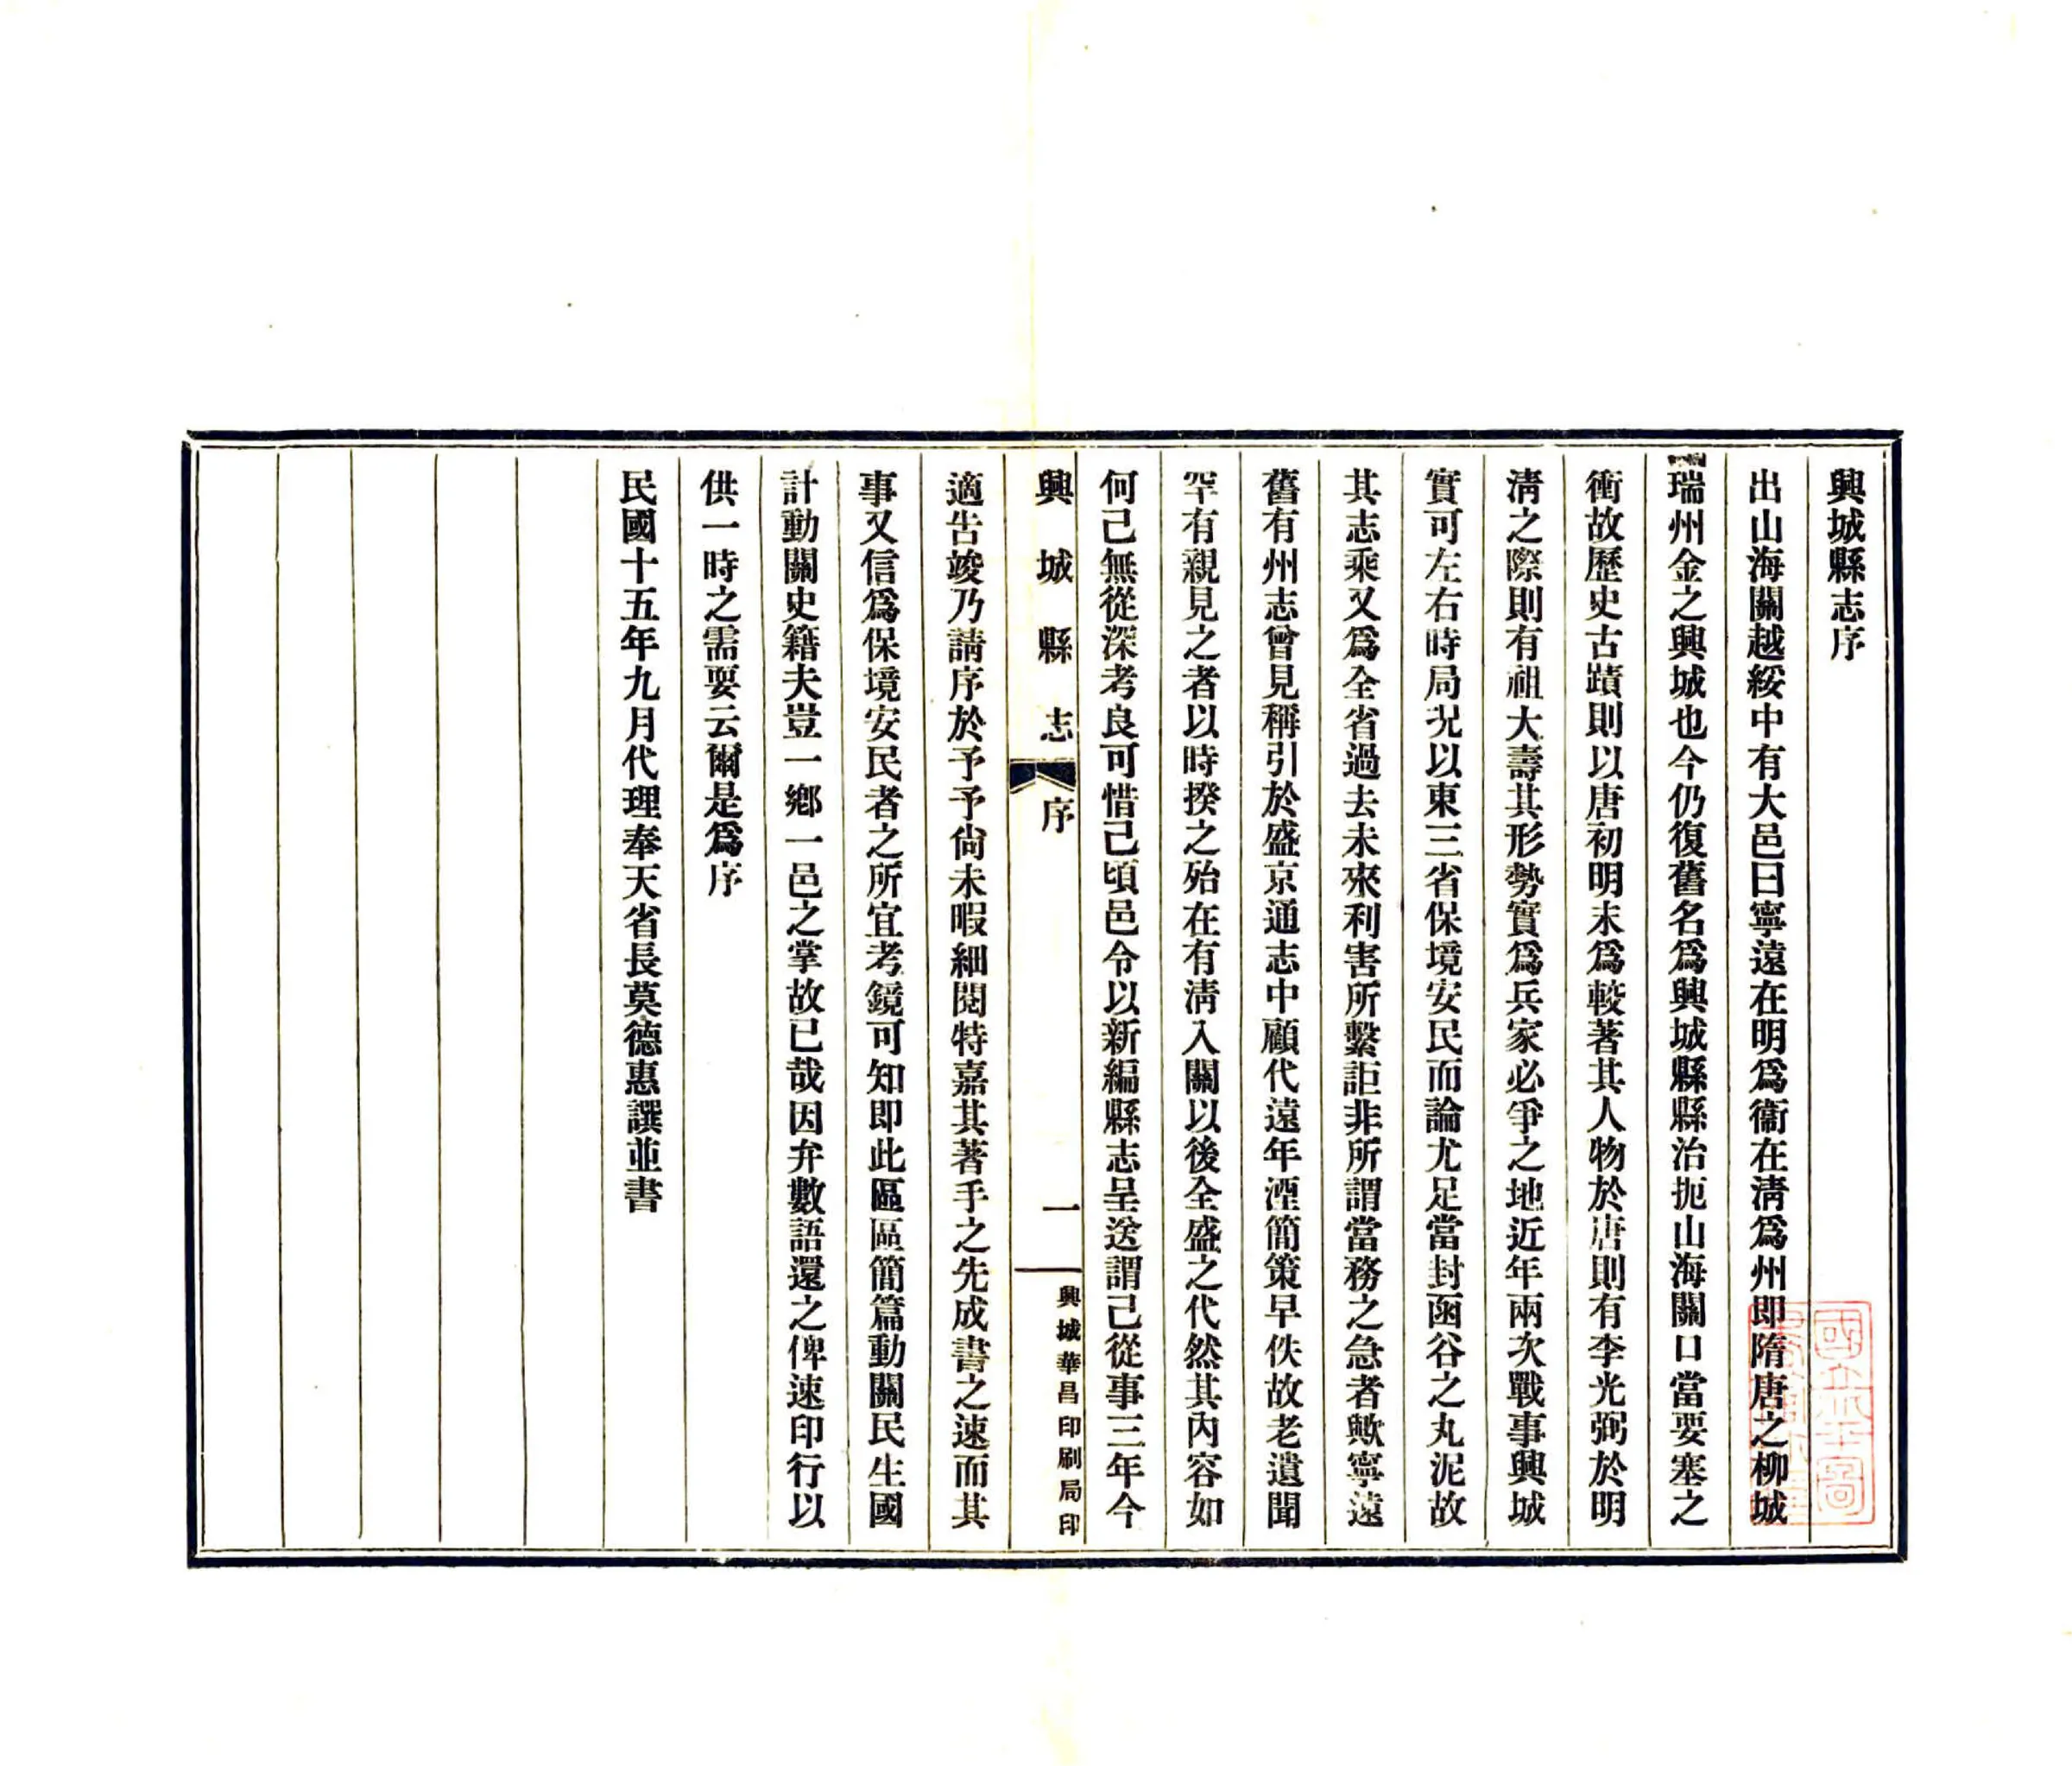 興城縣志序
出山海關越綏中有大邑曰寧遠在明爲衞在淸爲州即隋唐之柳城
瑞州金之興城也今仍復舊名爲興城縣縣治扼山海關口當要塞之
衝故歷史古蹟則以唐初明末爲較著其人物於唐則有李光弼於明
淸之際則有祖大壽其形勢實爲兵家必爭之地近年兩次戰事興城
實可左右時局況以東三省保境安民而論尤足當封函谷之丸泥故
其志乘又爲全省過去未來利害所繫詎非所謂當務之急者歟寧遠
舊有州志曾見稱引於盛京通志中顧代遠年湮簡策早佚故老遺聞
罕有親見之者以時揆之殆在有淸入關以後全盛之代然其內容如
何已無從深考良可惜已頃邑令以新編縣志呈送謂己從事三年今
興城縣志 序 一 興城華昌印刷局印
適告竣乃請序於予予尙未暇細閱特嘉其著手之先成書之速而其
事又信爲保境安民者之所宜考鏡可知即此區區簡篇動關民生國
計動關史籍夫豈一鄕一邑之掌故已哉因弁數語還之俾速印行以
供一時之需要云爾是爲序
民國十五年九月代理奉天省長莫德惠譔並書